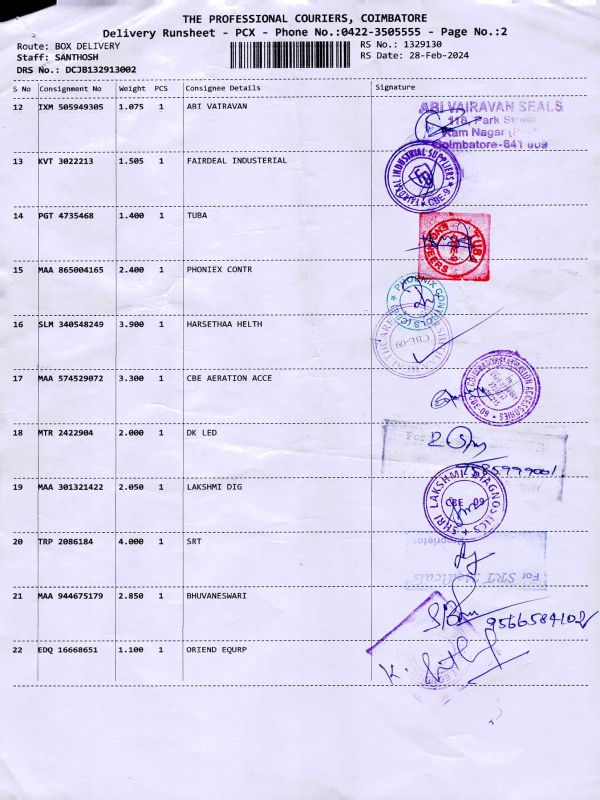 THE PROFESSIONAL COURIERS, COIMBATORE
Delivery Runsheet - PCX - Phone No.:0422-3505555 - Page No.:2
Route: BOX DELIVERY RS No.: 1329130
Staff: SANTHOSH RS Date: 28-Feb-2024
DRS No.: DCJB132913002
S No Consignment No Weight PCS Consignee Details Signature
12 IXM 505949305 1.075 1 ABI VAIRAVAN
ABI VAIRAVAN SEALS
118, Park Street
Ram Nagar
Coimbatore-641 009
13 KVT 3022213 1.505 1 FAIRDEAL INDUSTERIAL
INDUSTRIAL SUPPLIERS
CBE-9
14 PGT 4735468 1.400 1 TUBA
TUBA
15 MAA 865004165 2.400 1 PHONIEX CONTR
PHOENIX CONTROLS
16 SLM 340548249 3.900 1 HARSETHAA HELTH
CBE-09
17 MAA 574529072 3.300 1 CBE AERATION ACCE
ACCESSORIES
18 MTR 2422904 2.000 1 DK LED
For
19 MAA 301321422 2.050 1 LAKSHMI DIG
SHRI LAKSHMI DIAGNOSTICS
CBE 09
20 TRP 2086184 4.000 1 SRT
Proprietor
For SRT Medicals
21 MAA 944675179 2.850 1 BHUVANESWARI
9566584102
22 EDQ 16668651 1.100 1 ORIEND EQURP
K.